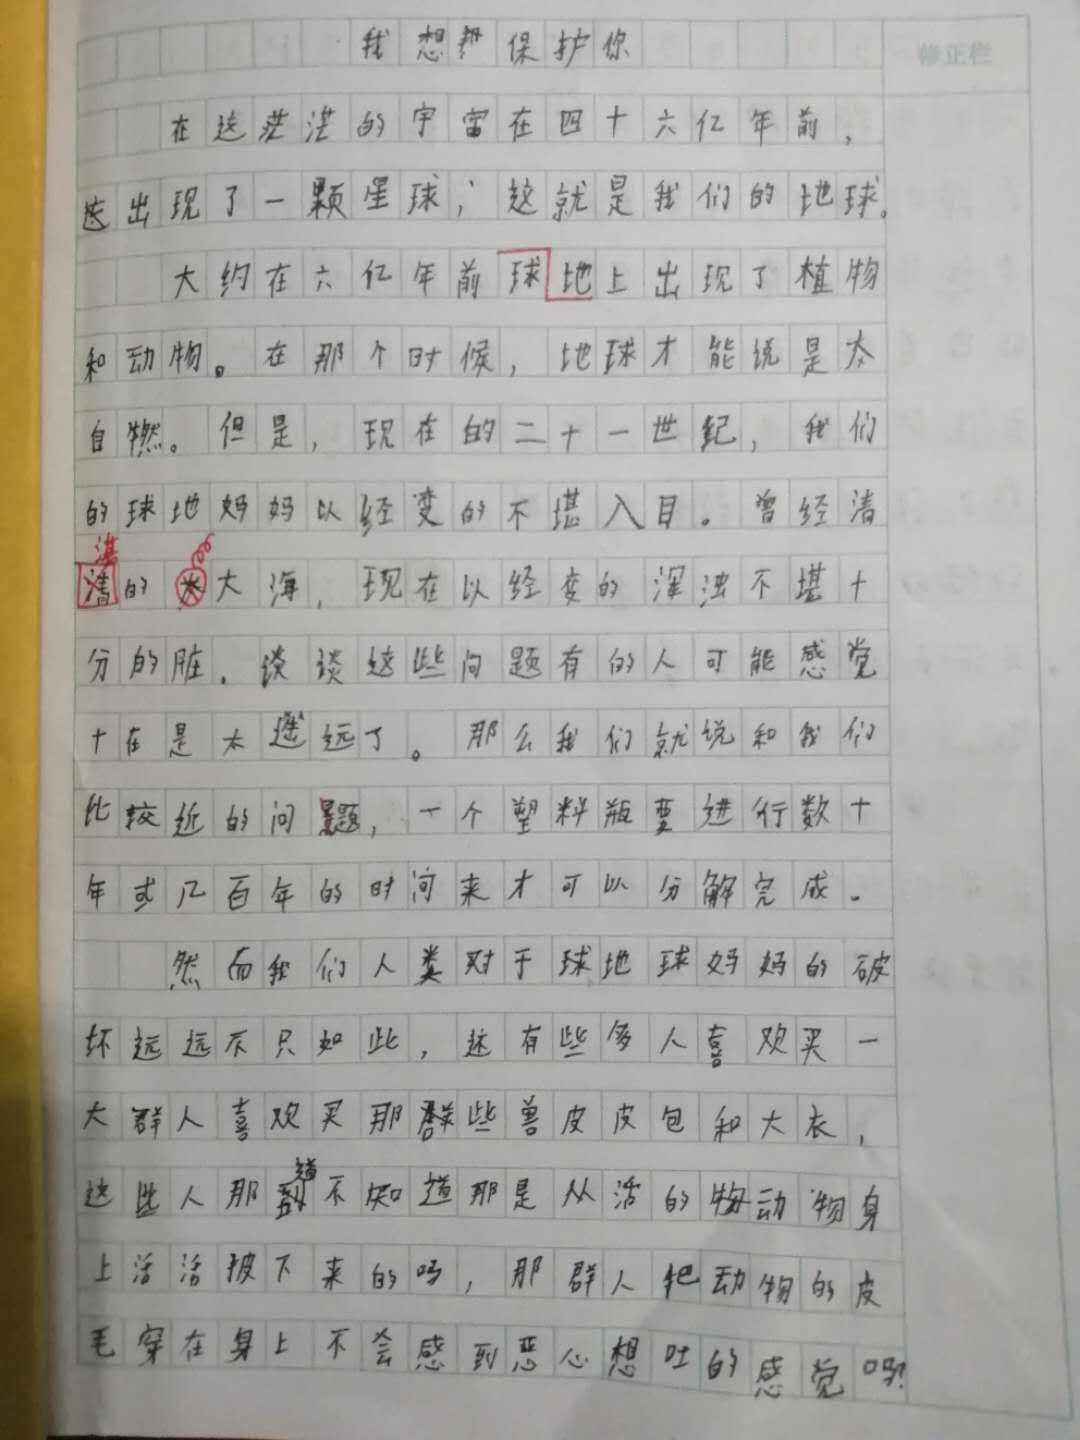 我想保护你
修正栏
在这茫茫的宇宙在四十六亿年前，
出现了一颗星球，这就是我们的地球。
大约在六亿年前球地上出现了植物
和动物。在那个时候，地球才能说是大
自燃。但是，现在的二十一世纪，我们
的球地妈妈以经变的不堪入目。曾经清
湛
清的大海，现在以经变的浑浊不堪十
分的脏。谈谈这些问题有的人可能感觉
十在是太遥远了。那么我们就说和我们
比较近的问题，一个塑料瓶要进行数十
年或几百年的时间来才可以分解完成。
然而我们人类对于球地球妈妈的破
坏远远不只如此，这有些多人喜欢买一
大群人喜欢买那群些兽皮皮包和大衣，
这些人那道不知道那是从活的物动物身
上活活披下来的吗，那群人把动物的皮
毛穿在身上不会感到恶心想吐的感觉吗！